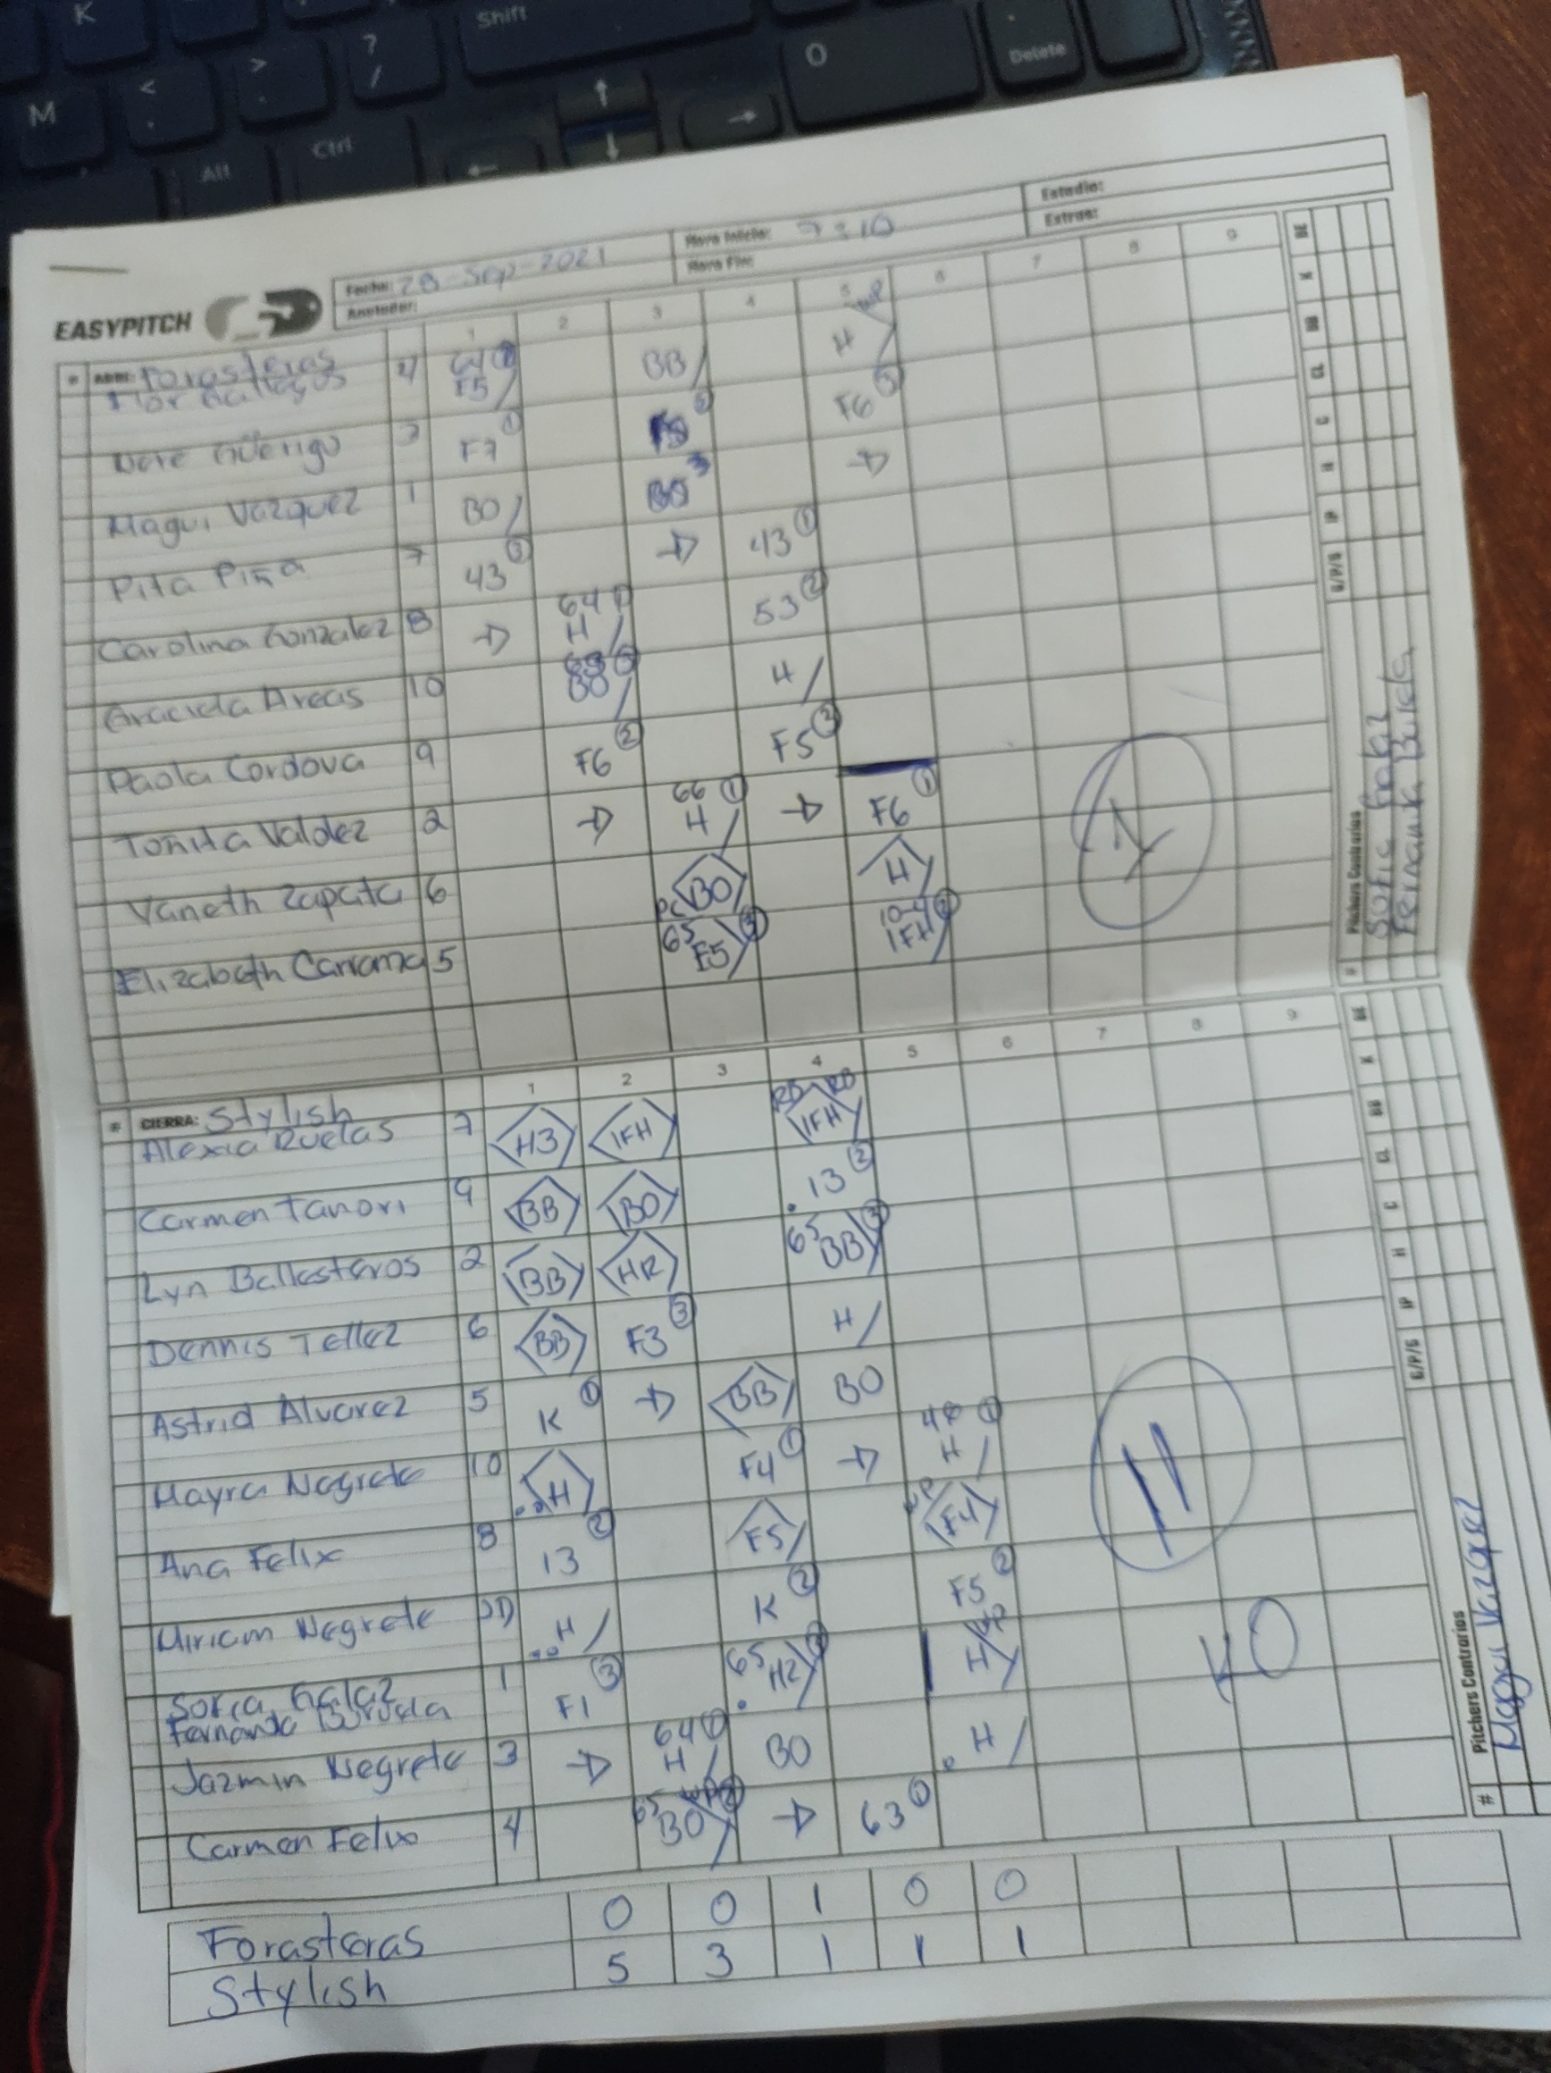 K
Shift
?
/
O
Delete
M
<
>
.
Alt
Ctrl
↑
←
↓
→
EASYPITCH
Fecha: 28-Sep-2021
Hora Inicio: 7:10
Estadio:
Anotador:
Hora Fin:
Extras:
1 2 3 4 5 6 7 8 9
ABRE: Forasteras
4 64 F5 BB H
3 F7 ① F6 ③
Magui Vazquez 1 BO
Pita Piña 7 43 ③ 43 ①
Carolina Gonzalez 8 64 H 53 ②
Graciela Areas 10 BO H
Paola Cordova 9 F6 ② F5 ③
Toñita Valdez 2 66 ① H F6 ①
Vaneth Zapata 6 BO H
Elizabeth Carrama 5 65 F5 ③ 10-4 IFH
Pitchers Contrarios
Sofia Galaz
Fernanda Buruela
G/P/S IP H C CL BB K
# CIERRA: Stylish 1 2 3 4 5 6 7 8 9
Alexia Ruelas 7 H3 IFH RB RB IFH
Carmen Tanori 9 BB BO 13 ②
Lyn Ballesteros 2 BB HR 65 BB ③
Dennis Tellez 6 BB F3 ③ H
Astrid Alvarez 5 K ① BB BO
Mayra Negrete 10 H F4 ① H
Ana Felix 8 13 ② F5 F4
Miriam Negrete H K ② F5 ②
Sofia Galaz
Fernanda Buruela 1 F1 ③ 65 H2 H
Jazmin Negrete 3 64 H BO H
Carmen Felix 4 65 BO 63 ①
11
KO
Pitchers Contrarios
Magui Vazquez
G/P/S IP H C CL BB K
Forasteras 0 0 1 0 0
Stylish 5 3 1 1 1